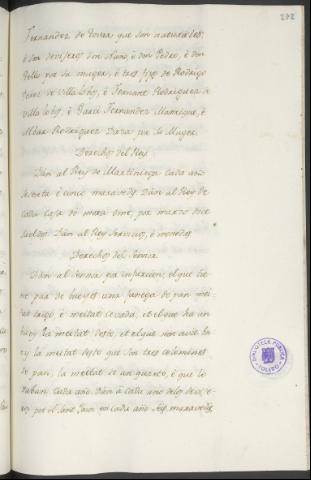 272
Fernandez de Tovar que son naturales;
é son deviseros don Nuño, é don Pedro, é don
Tello por su muger, é tres fijos de Rodrigo
Perez de Villalobos, é Fernant Rodriguez de
Villalobos, é Garci Fernandez Manrique, é
Alvar Rodriguez Daza por la Muger.
Derechos del Rey
Dan al Rey de Martiniega cada año
sesenta é cinco maravedis. Dan al Rey de
cada casa do mora ome, por marzo doce
sueldos. Dan al Rey servicios, é monedas
Derechos del Señor
Dan al Señor por infurcion, el que tie
ne par de bueyes una fanega de pan mei
tat trigo, é meitat cevada, et el que ha un
buey la meitat desto, et el que non avie bu
ey la meitat desto que son tres celemines
de pan, la meitat de un quarto, é que lo
suban cada año. Dan á cada uno de los devi
por el Sant Juan en cada año seis maravedis,
BIBLIOTECA PUBLICA
TOLEDO